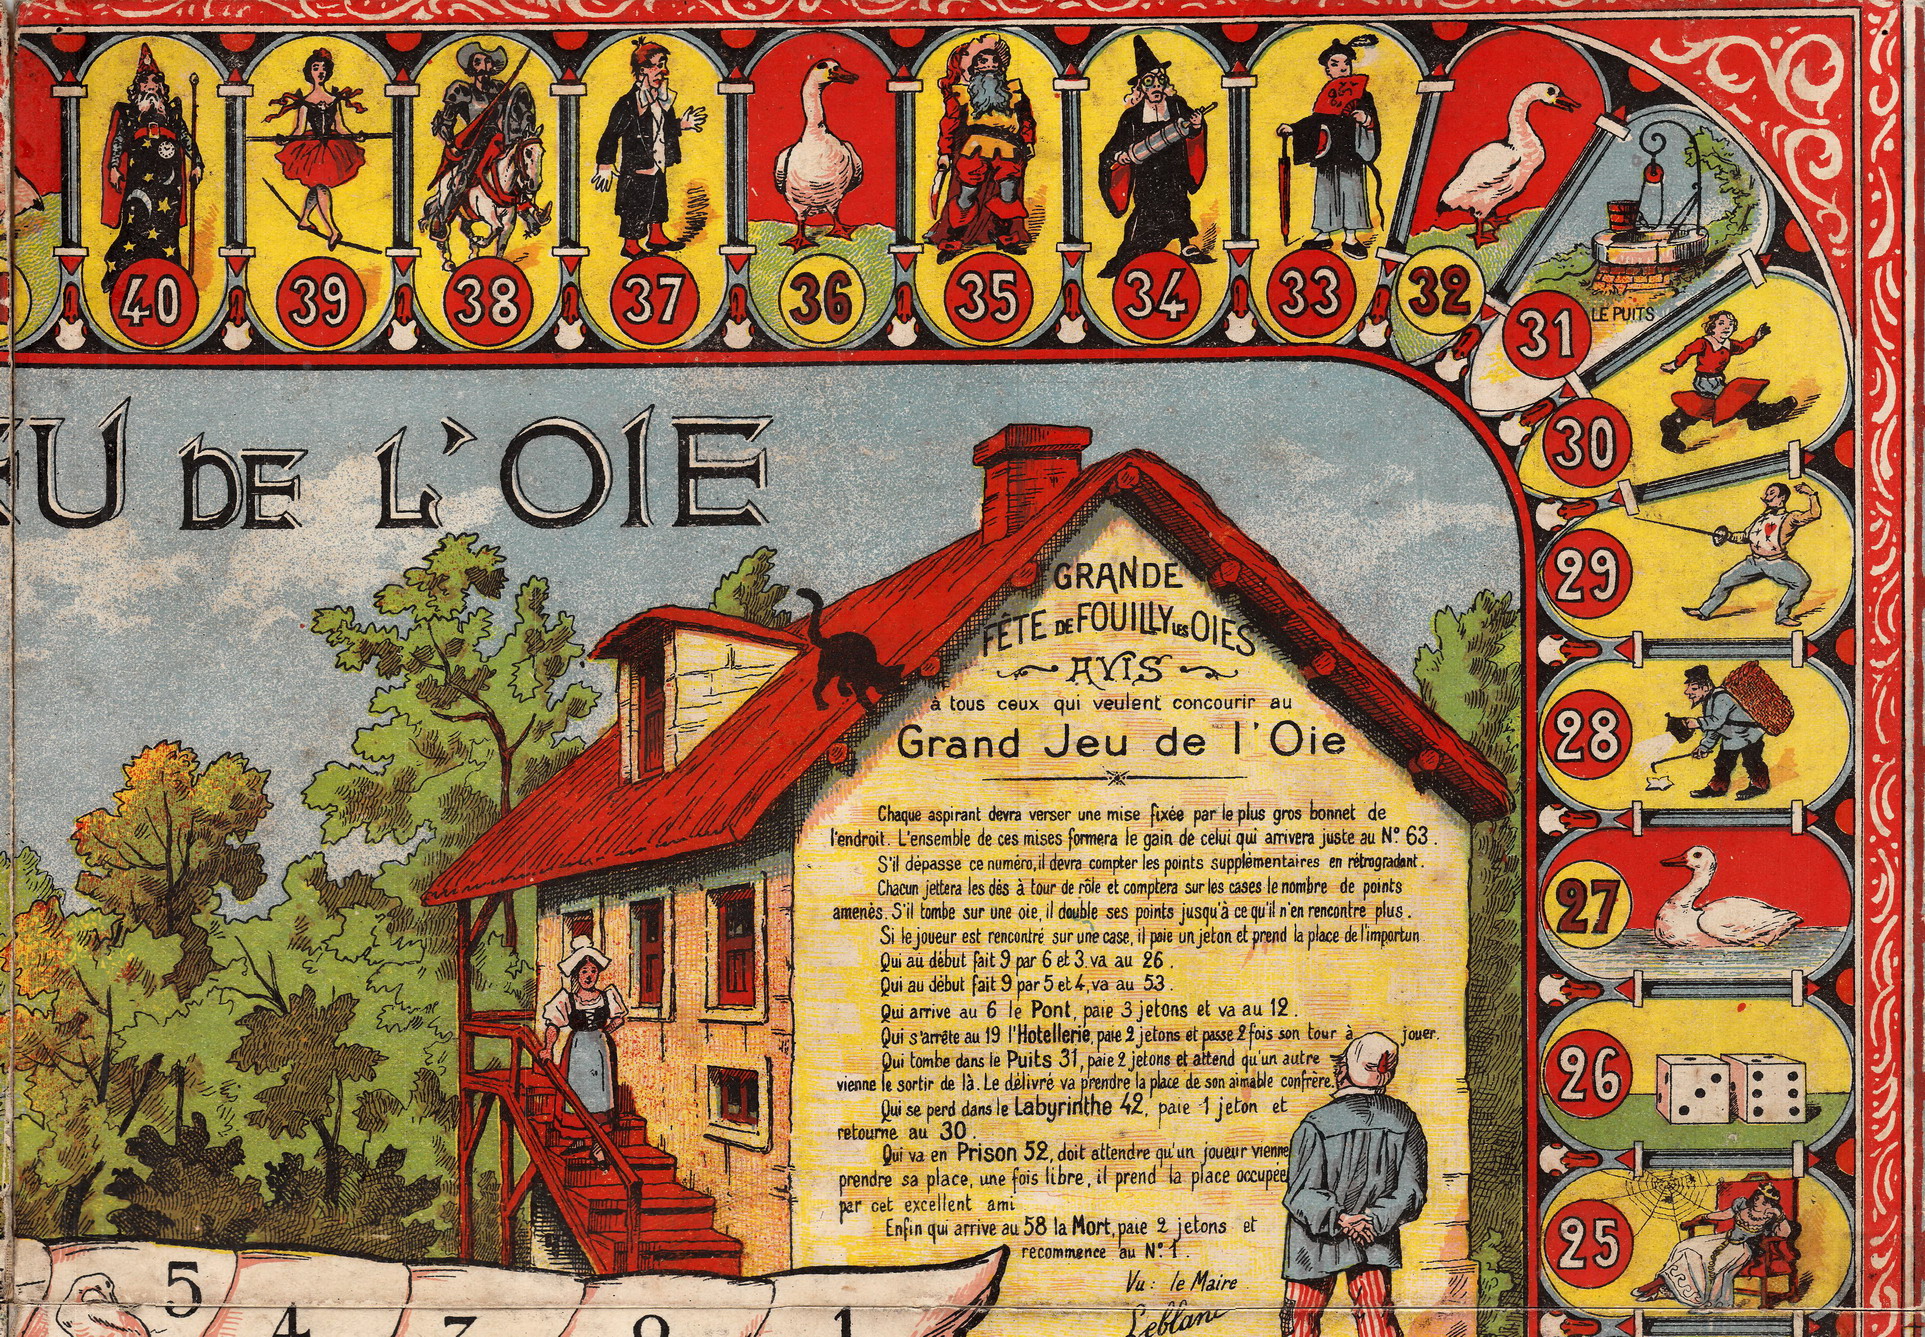 40 39 38 37 36 35 34 33 32
31
LE PUITS
30
29
28
27
26
25
EU DE L'OIE
GRANDE
FÊTE DE FOUILLY LES OIES
AVIS
à tous ceux qui veulent concourir au
Grand Jeu de l'Oie
Chaque aspirant devra verser une mise fixée par le plus gros bonnet de
l'endroit. L'ensemble de ces mises formera le gain de celui qui arrivera juste au N° 63.
S'il dépasse ce numéro, il devra compter les points supplémentaires en rétrogradant.
Chacun jettera les dés à tour de rôle et comptera sur les cases le nombre de points
amenés. S'il tombe sur une oie, il double ses points jusqu'à ce qu'il n'en rencontre plus.
Si le joueur est rencontré sur une case, il paie un jeton et prend la place de l'importun
Qui au début fait 9 par 6 et 3, va au 26.
Qui au début fait 9 par 5 et 4, va au 53.
Qui arrive au 6 le Pont, paie 3 jetons et va au 12.
Qui s'arrête au 19 l'Hotellerie, paie 2 jetons et passe 2 fois son tour à jouer.
Qui tombe dans le Puits 31, paie 2 jetons et attend qu'un autre
vienne le sortir de là. Le délivré va prendre la place de son aimable confrère.
Qui se perd dans le Labyrinthe 42, paie 1 jeton et
retourne au 30.
Qui va en Prison 52, doit attendre qu'un joueur vienne
prendre sa place, une fois libre, il prend la place occupée
par cet excellent ami
Enfin qui arrive au 58 la Mort, paie 2 jetons et
recommence au N° 1.
Vu : le Maire
Leblanc
5
4
1